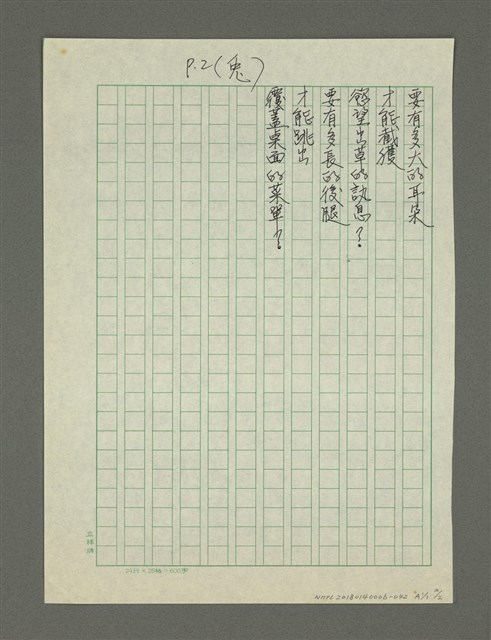 P.2(兔)
要有多大的耳朵
才能截獲
慾望出草的訊息？
要有多長的後腿
才能跳出
覆蓋桌面的菜單？
25行×20格=600字
NMTL20180140006-042